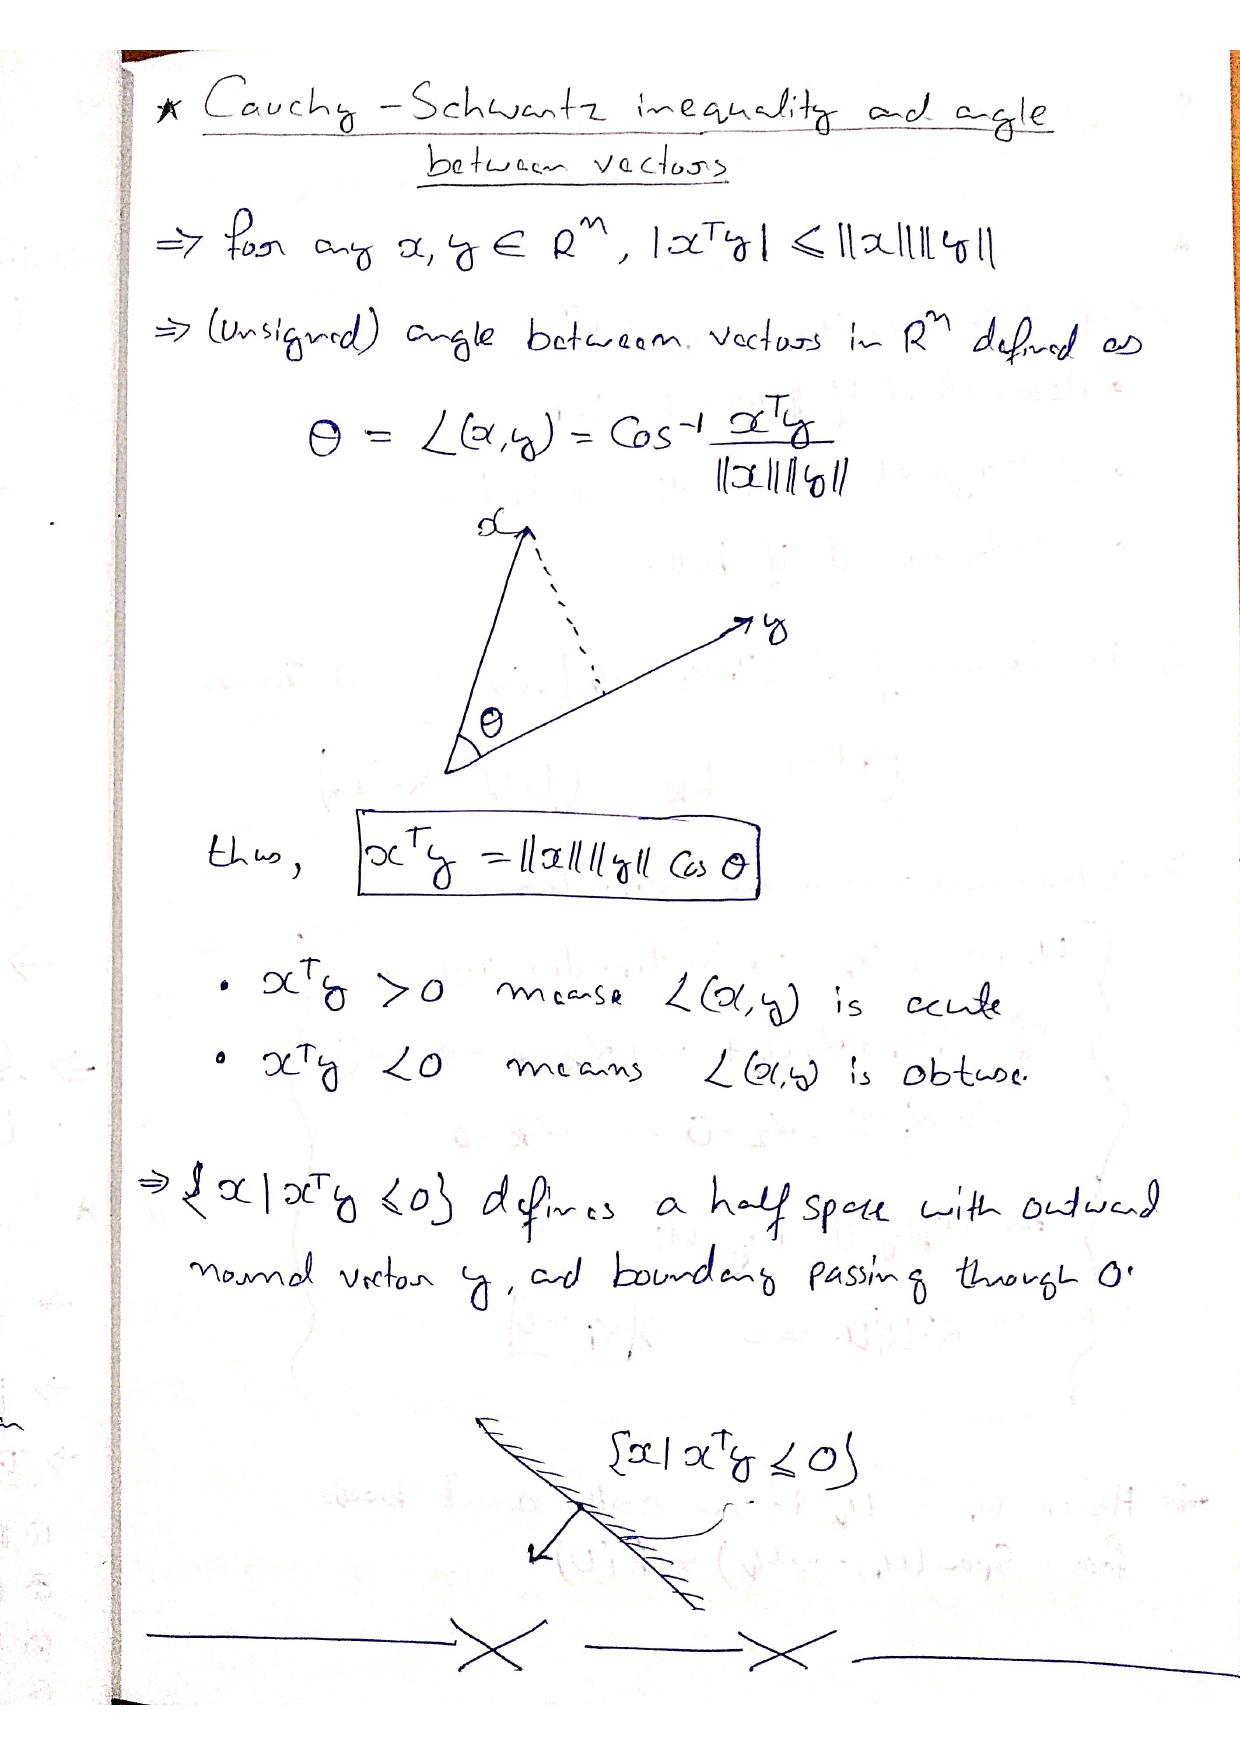 * Cauchy - Schwartz inequality and angle
between vectors
⇒ for any x, y ∈ Rⁿ, |xᵀy| ≤ ||x|| ||y||
⇒ (Unsigned) angle between vectors in Rⁿ defined as
θ = ∠(x,y) = Cos⁻¹ xᵀy / ||x|| ||y||
x
y
θ
thus, xᵀy = ||x|| ||y|| Cos θ
• xᵀy > 0 meanse ∠(x,y) is acute
• xᵀy < 0 means ∠(x,y) is obtuse.
⇒ {x | xᵀy ≤ 0} defines a half space with outward
normal vector y, and boundary passing through 0.
{x | xᵀy ≤ 0}